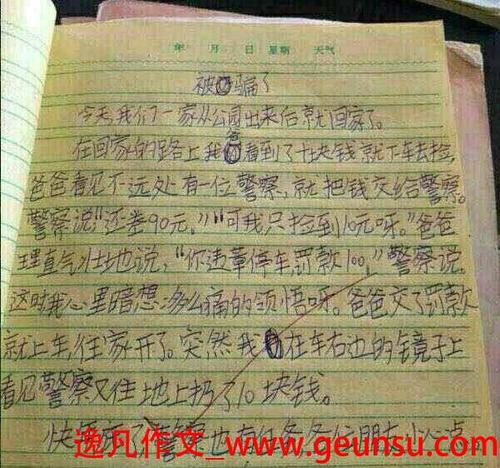 年 月 日 星期 天气
被骗了
今天我们一家从公园出来后就回家了。
在回家的路上我爸看到了十块钱就下车去捡,
爸爸看见不远处有一位警察,就把钱交给警察。
警察说"还差90元,""可我只捡到10元呀。"爸爸
理直气壮地说,"你违章停车罚款100,"警察说。
这时我心里暗想多么痛的领悟呀。爸爸交了罚款
就上车往家开了。突然我在车右边的镜子上
看见警察又住地上扔了10块钱。
快 了 警察也有任务,各位朋友小心点
逸凡作文_www.geunsu.com